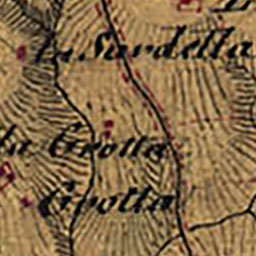 la Sardella
la Grotta
Grotta